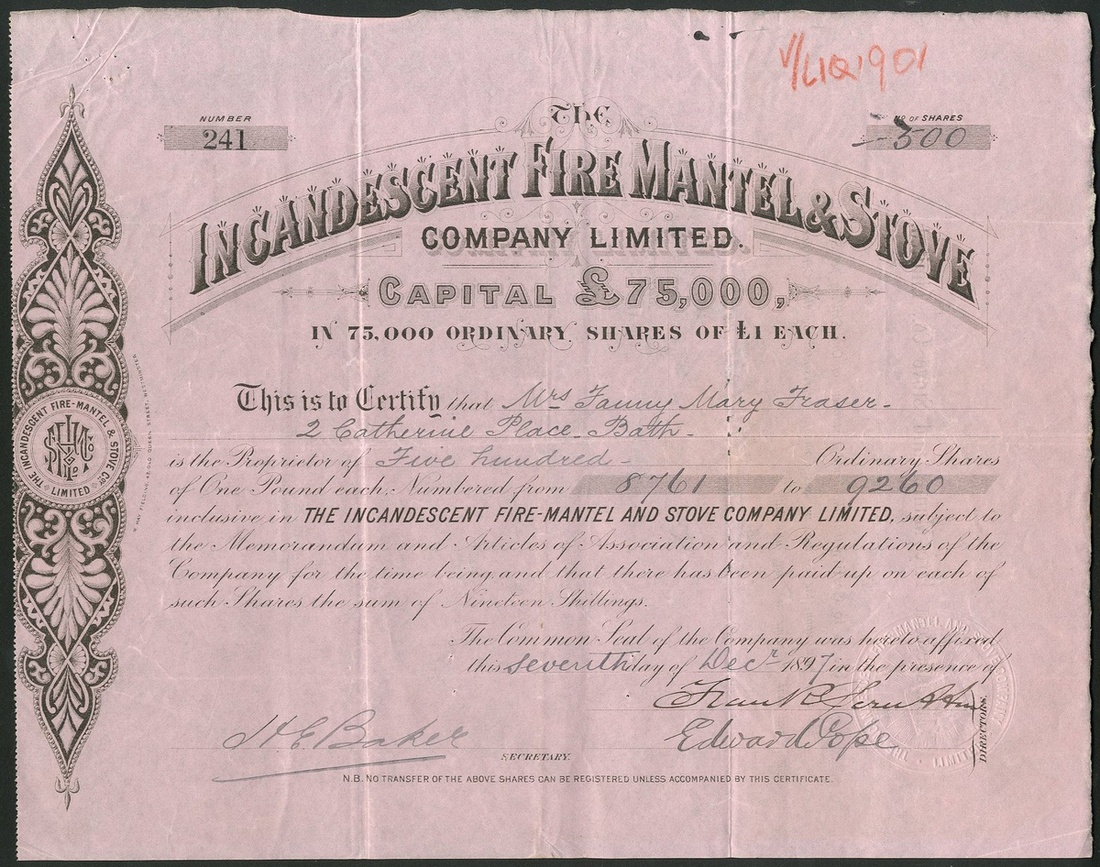 V/LIQ 1901
NUMBER
241
NO OF SHARES
500
THE
INCANDESCENT FIRE MANTEL & STOVE
COMPANY LIMITED.
CAPITAL £75,000,
IN 75,000 ORDINARY SHARES OF £1 EACH.
This is to Certify that Mrs Fanny Mary Fraser -
2 Catherine Place - Bath -
is the Proprietor of Five hundred - Ordinary Shares
of One Pound each, Numbered from 8761 to 9260
inclusive in THE INCANDESCENT FIRE-MANTEL AND STOVE COMPANY LIMITED, subject to
the Memorandum and Articles of Association and Regulations of the
Company for the time being, and that there has been paid up on each of
such Shares the sum of Nineteen Shillings.
The Common Seal of the Company was hereto affixed,
this seventh day of Decr 1897 in the presence of
Frank
Edward Cope
DIRECTORS.
H E Baker
SECRETARY.
N.B. NO TRANSFER OF THE ABOVE SHARES CAN BE REGISTERED UNLESS ACCOMPANIED BY THIS CERTIFICATE.
THE INCANDESCENT FIRE-MANTEL & STOVE COY
LIMITED